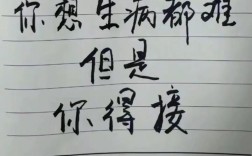 你想生病都难
但是
你得接